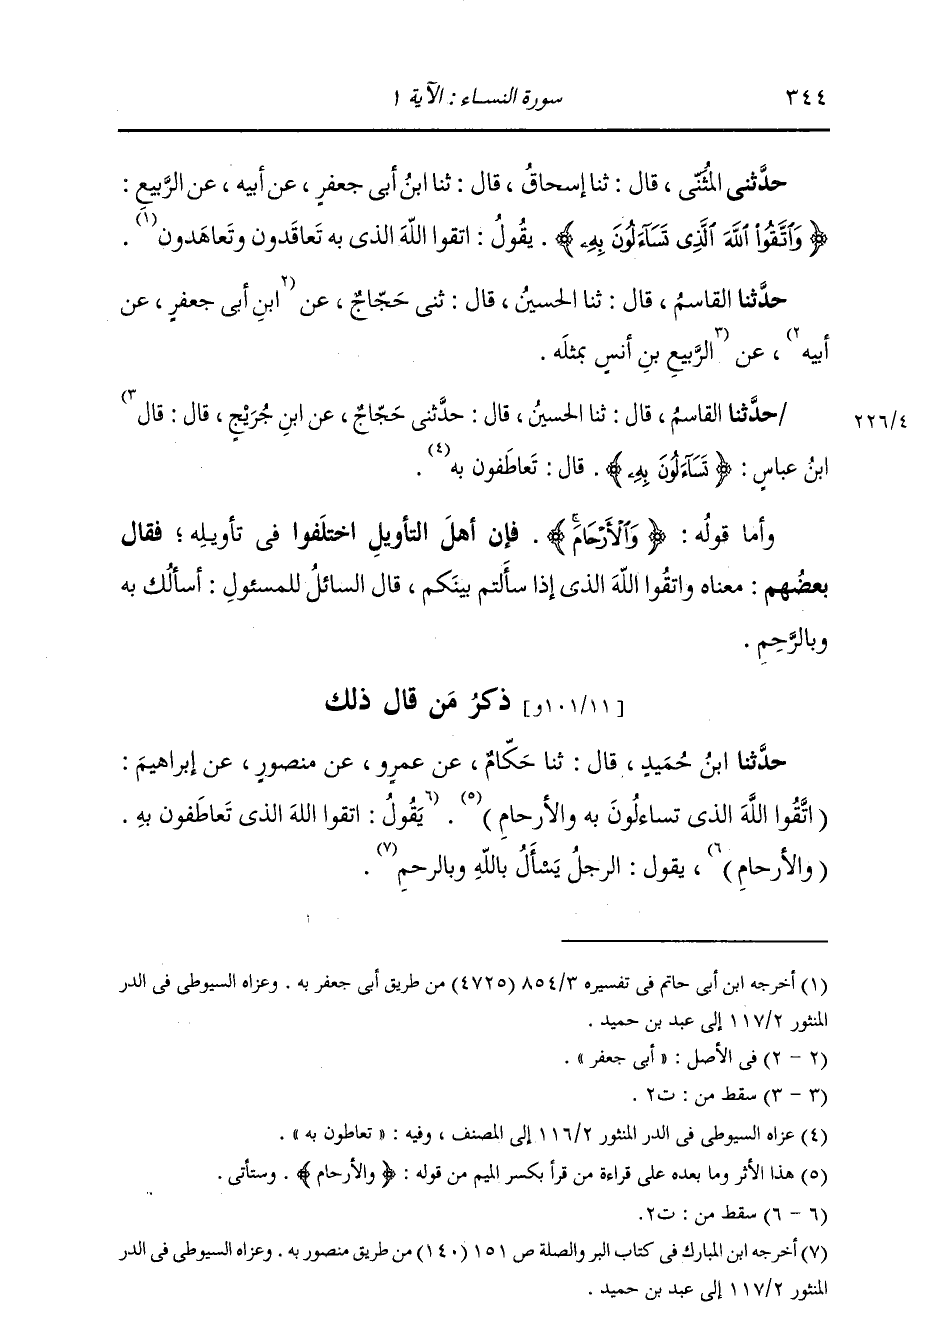 ٣٤٤ سورة النساء : الآية ١
حدَّثنى المُثنّى ، قال : ثنا إسحاقُ ، قال : ثنا ابنُ أبى جعفرٍ ، عن أبيه ، عن الرَّبيعِ :
﴿ وَٱتَّقُوا۟ ٱللَّهَ ٱلَّذِى تَسَآءَلُونَ بِهِۦ ﴾ . يقُولُ : اتقوا اللَّهَ الذى به تَعاقَدون وتَعاهَدون(١) .
حدَّثنا القاسمُ ، قال : ثنا الحسينُ ، قال : ثنى حَجّاجٌ ، عن (٢ابنِ أبى جعفرٍ ، عن
أبيه٢) ، عن (٣الرَّبيعِ بنِ أنسٍ بمثلَه .
٢٢٦/٤ /حدَّثنا القاسمُ ، قال : ثنا الحسينُ ، قال : حدَّثنى حَجّاجٌ ، عن ابنِ جُرَيْجٍ ، قال : قال٣)
ابنُ عباسٍ : ﴿ تَسَآءَلُونَ بِهِۦ ﴾ . قال : تَعاطَفون به(٤) .
وأما قولُه : ﴿ وَٱلْأَرْحَامَۚ ﴾ . فإن أهلَ التأويلِ اختلَفوا فى تأويلِه ؛ فقال
بعضُهم : معناه واتقُوا اللَّهَ الذى إذا سأَلتم بينَكم ، قال السائلُ للمسئولِ : أسألُك به
وبالرَّحِمِ .
[١٠١/١١و] ذكرُ مَن قال ذلك
حدَّثنا ابنُ حُمَيدٍ ، قال : ثنا حَكّامٌ ، عن عمرٍو ، عن منصورٍ ، عن إبراهيمَ :
( اتَّقُوا اللَّهَ الذى تساءلُونَ به والأرحامِ )(٥) . (٦يَقُولُ : اتقوا اللهَ الذى تَعاطَفون بهِ .
( والأرحامِ )٦) ، يقول : الرجلُ يَسْأَلُ باللَّهِ وبالرحمِ(٧) .
(١) أخرجه ابن أبى حاتم فى تفسيره ٨٥٤/٣ (٤٧٢٥) من طريق أبى جعفر به . وعزاه السيوطى فى الدر
المنثور ١١٧/٢ إلى عبد بن حميد .
(٢ - ٢) فى الأصل : « أبى جعفر » .
(٣ - ٣) سقط من : ت٢ .
(٤) عزاه السيوطى فى الدر المنثور ١١٦/٢ إلى المصنف ، وفيه : « تعاطون به » .
(٥) هذا الأثر وما بعده على قراءة من قرأ بكسر الميم من قوله : ﴿ والأرحام ﴾ . وستأتى .
(٦ - ٦) سقط من : ت٢.
(٧) أخرجه ابن المبارك فى كتاب البر والصلة ص ١٥١ (١٤٠) من طريق منصور به . وعزاه السيوطى فى الدر
المنثور ١١٧/٢ إلى عبد بن حميد .